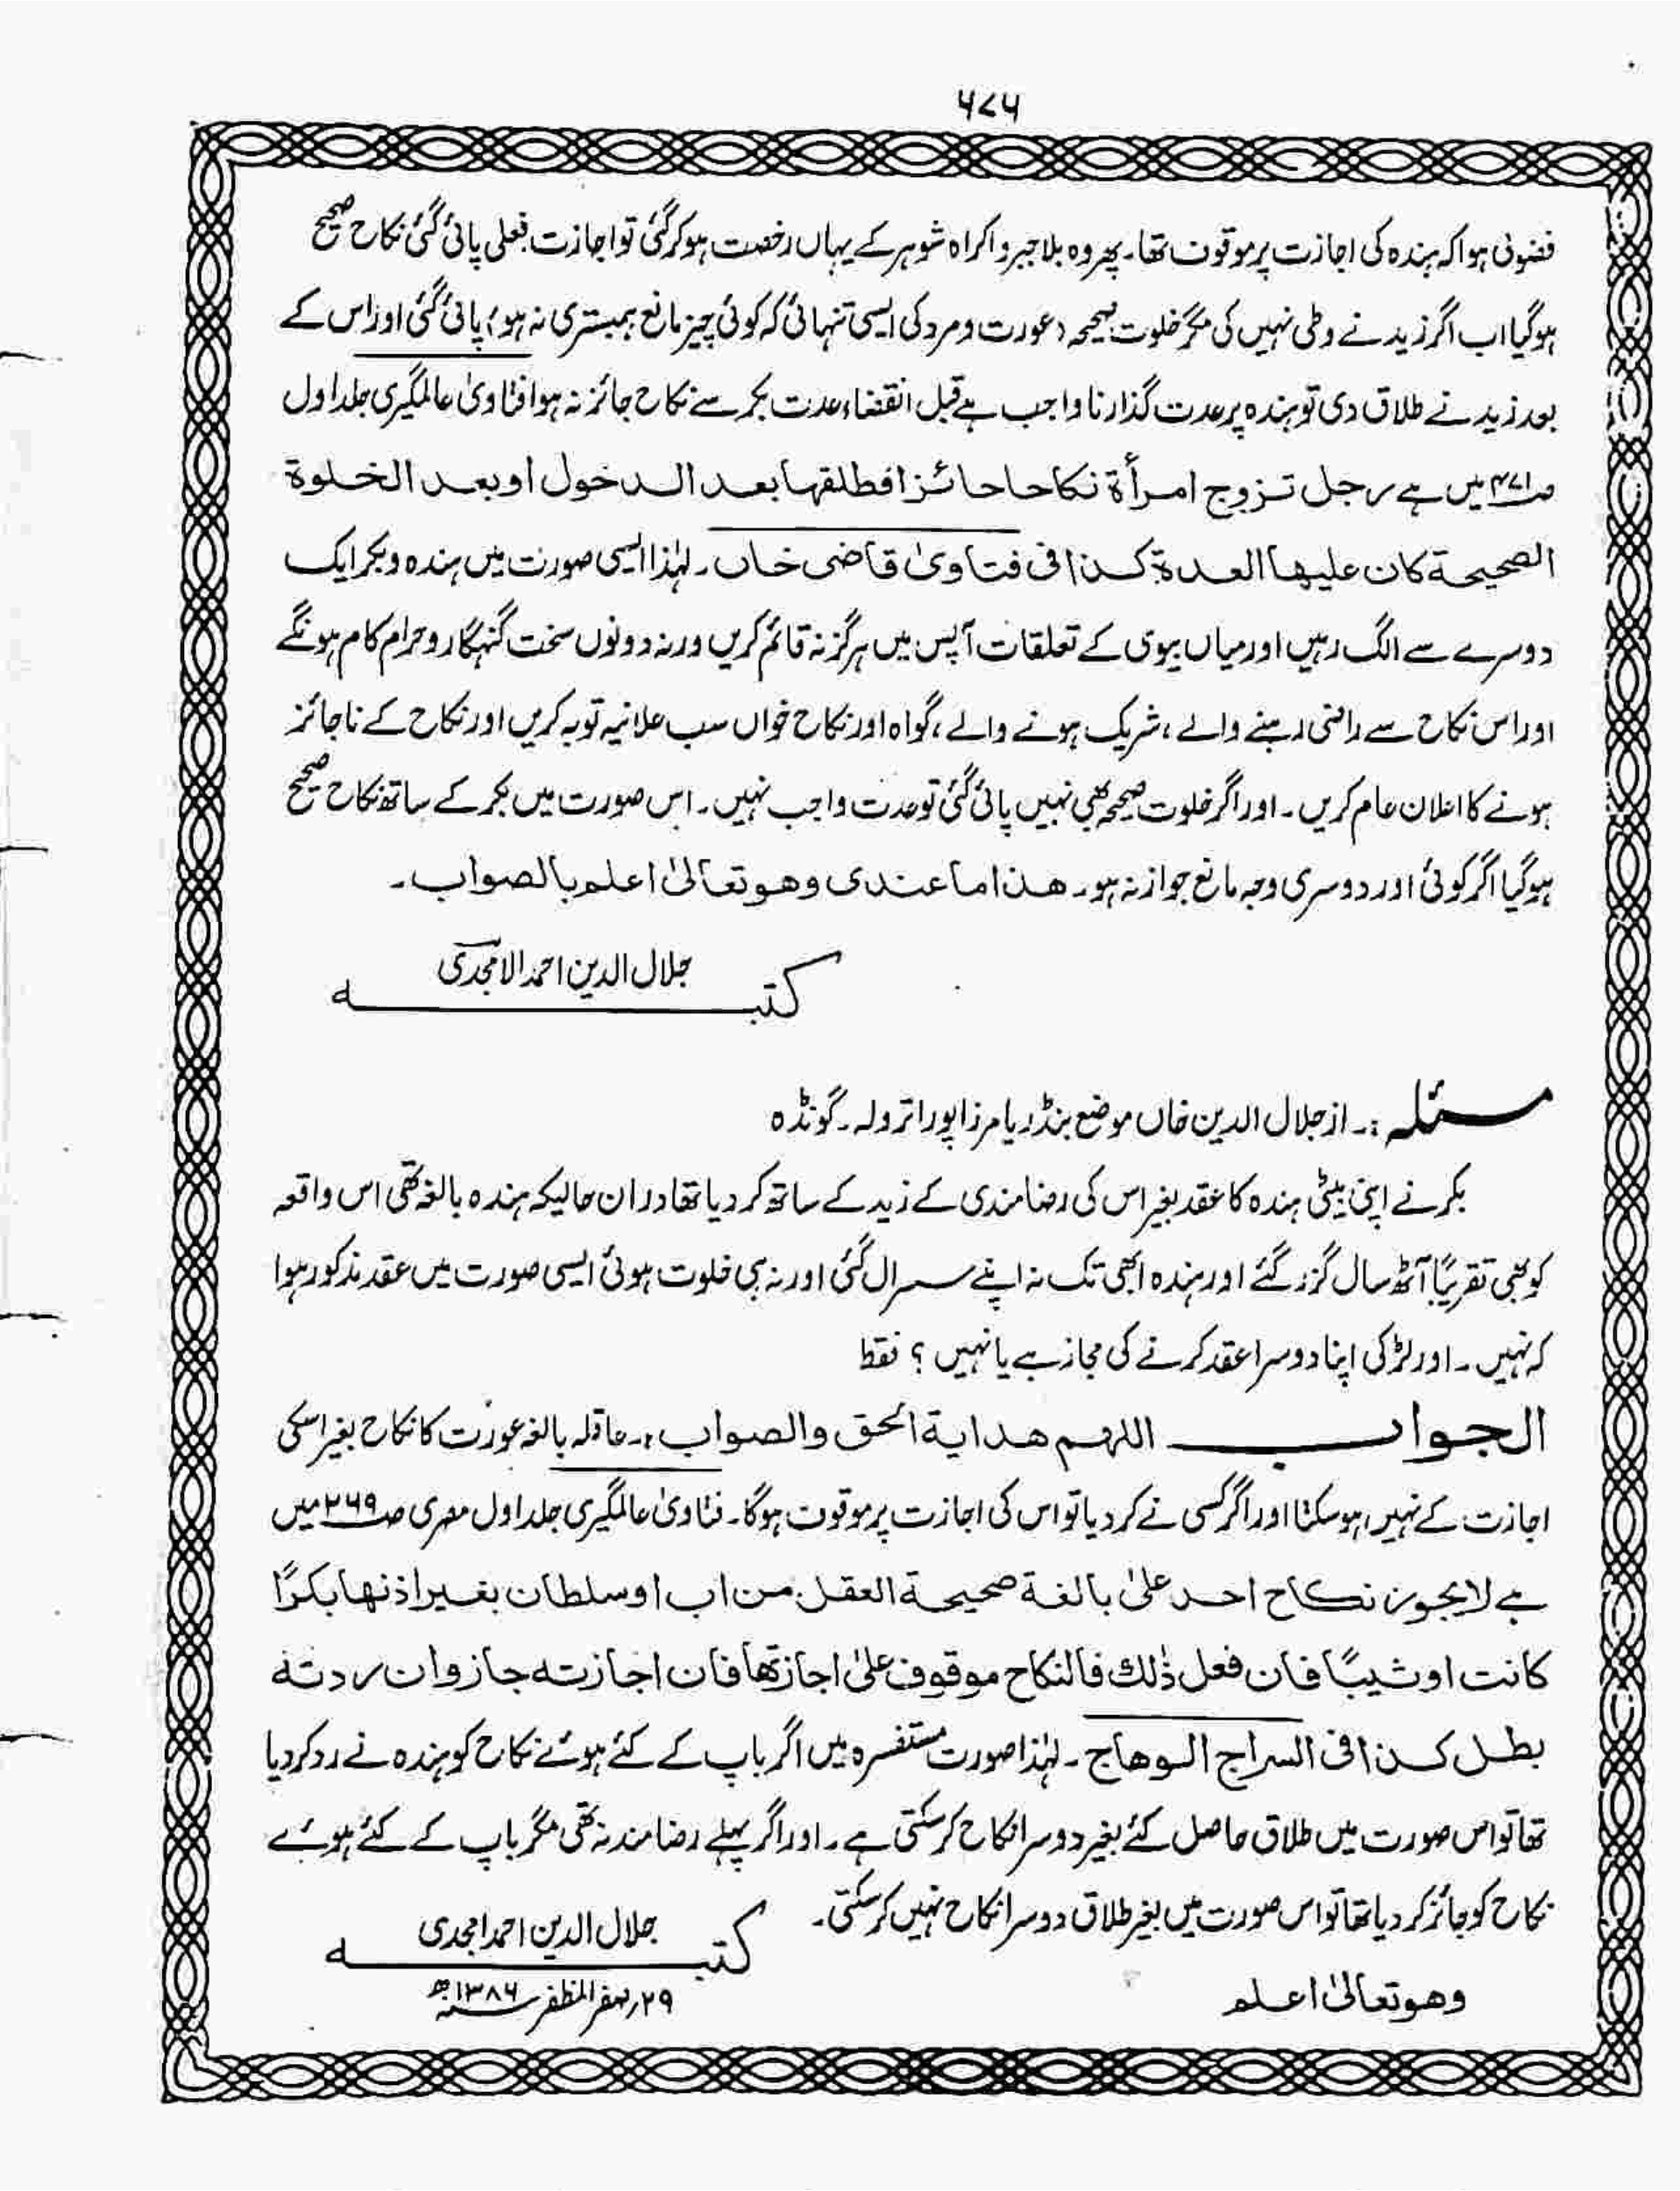 ۶۷۶
فضولی ہوا کہ ہندہ کی اجازت پر موقوف تھا۔ پھر وہ بلا جبر و اکراہ شوہر کے یہاں رخصت ہو کر گئی تو اجازت فعلی پائی گئی نکاح صحیح
ہو گیا اب اگر زید نے وطی نہیں کی مگر خلوت صحیحہ (عورت و مرد کی ایسی تنہائی کہ کوئی چیز مانع ہمبستری نہ ہو) پائی گئی اور اس کے
بعد زید نے طلاق دی تو ہندہ پر عدت گذارنا واجب ہے قبل انقضاء عدت بکر سے نکاح جائز نہ ہوا فتاویٰ عالمگیری جلد اول
ص۴۷۱ میں ہے رجل تزوج امرأة نکاحا جائزا فطلقها بعد الدخول او بعد الخلوة
الصحیحة کان علیها العدة کذا فی فتاویٰ قاضی خاں۔ لہٰذا ایسی صورت میں ہندہ و بکر ایک
دوسرے سے الگ رہیں اور میاں بیوی کے تعلقات آپس میں ہرگز نہ قائم کریں ورنہ دونوں سخت گنہگار و حرام کام ہونگے
اور اس نکاح سے راضی رہنے والے، شریک ہونے والے، گواہ اور نکاح خواں سب علانیہ توبہ کریں اور نکاح کے ناجائز
ہونے کا اعلان عام کریں۔ اور اگر خلوت صحیحہ بھی نہیں پائی گئی تو عدت واجب نہیں۔ اس صورت میں بکر کے ساتھ نکاح صحیح
ہو گیا اگر کوئی اور دوسری وجہ مانع جواز نہ ہو۔ هذا ما عندی وهو تعالیٰ اعلم بالصواب۔
کتبہ جلال الدین احمد الامجدی
مسئلہ :۔ از جلال الدین خاں موضع بنڈریا مرزا پور اترولہ۔ گونڈہ
بکر نے اپنی بیٹی ہندہ کا عقد بغیر اس کی رضامندی کے زید کے ساتھ کر دیا تھا دران حالیکہ ہندہ بالغہ تھی اس واقعہ
کو بھی تقریباً آٹھ سال گزر گئے اور ہندہ ابھی تک نہ اپنے سسرال گئی اور نہ ہی خلوت ہوئی ایسی صورت میں عقد مذکور ہوا
کہ نہیں۔ اور لڑکی اپنا دوسرا عقد کرنے کی مجاز ہے یا نہیں؟ فقط
الجواب اللهم هدایة الحق والصواب :۔ عاقلہ بالغہ عورت کا نکاح بغیر اسکی
اجازت کے نہیں ہو سکتا اور اگر کسی نے کر دیا تو اس کی اجازت پر موقوف ہوگا۔ فتاویٰ عالمگیری جلد اول مصری ص۲۶۹ میں
ہے لا یجوز نکاح احد علیٰ بالغة صحیحة العقل من اب او سلطان بغیر اذنها بکرًا
کانت او ثیبًا فان فعل ذٰلك فالنکاح موقوف علیٰ اجازتها فان اجازته جاز وان ردته
بطل کذا فی السراج الوهاج۔ لہٰذا صورت مستفسرہ میں اگر باپ کے کئے ہوئے نکاح کو ہندہ نے رد کر دیا
تھا تو اس صورت میں طلاق حاصل کئے بغیر دوسرا نکاح کر سکتی ہے۔ اور اگر پہلے رضامند نہ تھی مگر باپ کے کئے ہوئے
نکاح کو جائز کر دیا تھا تو اس صورت میں بغیر طلاق دوسرا نکاح نہیں کر سکتی۔
کتبہ جلال الدین احمد امجدی
وهو تعالیٰ اعلم
۲۹؍صفر المظفر سنہ ۱۳۸۶ھ